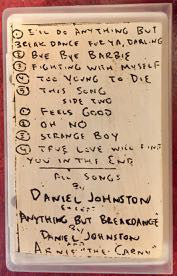 ① I'LL DO ANYTHING BUT
BREAK DANCE FOR YA, DARLING
② BYE BYE BARBIE
③ FIGHTING WITH MYSELF
④ TOO YOUNG TO DIE
⑤ THIS SONG
SIDE TWO
① FEELS GOOD
② OH NO
③ STRANGE BOY
④ TRUE LOVE WILL FIND
YOU IN THE END
ALL SONGS
BY
DANIEL JOHNSTON
EXCEPT
ANYTHING BUT BREAKDANCE
BY
DANIEL JOHNSTON
AND
ARNIE "THE CARNY"